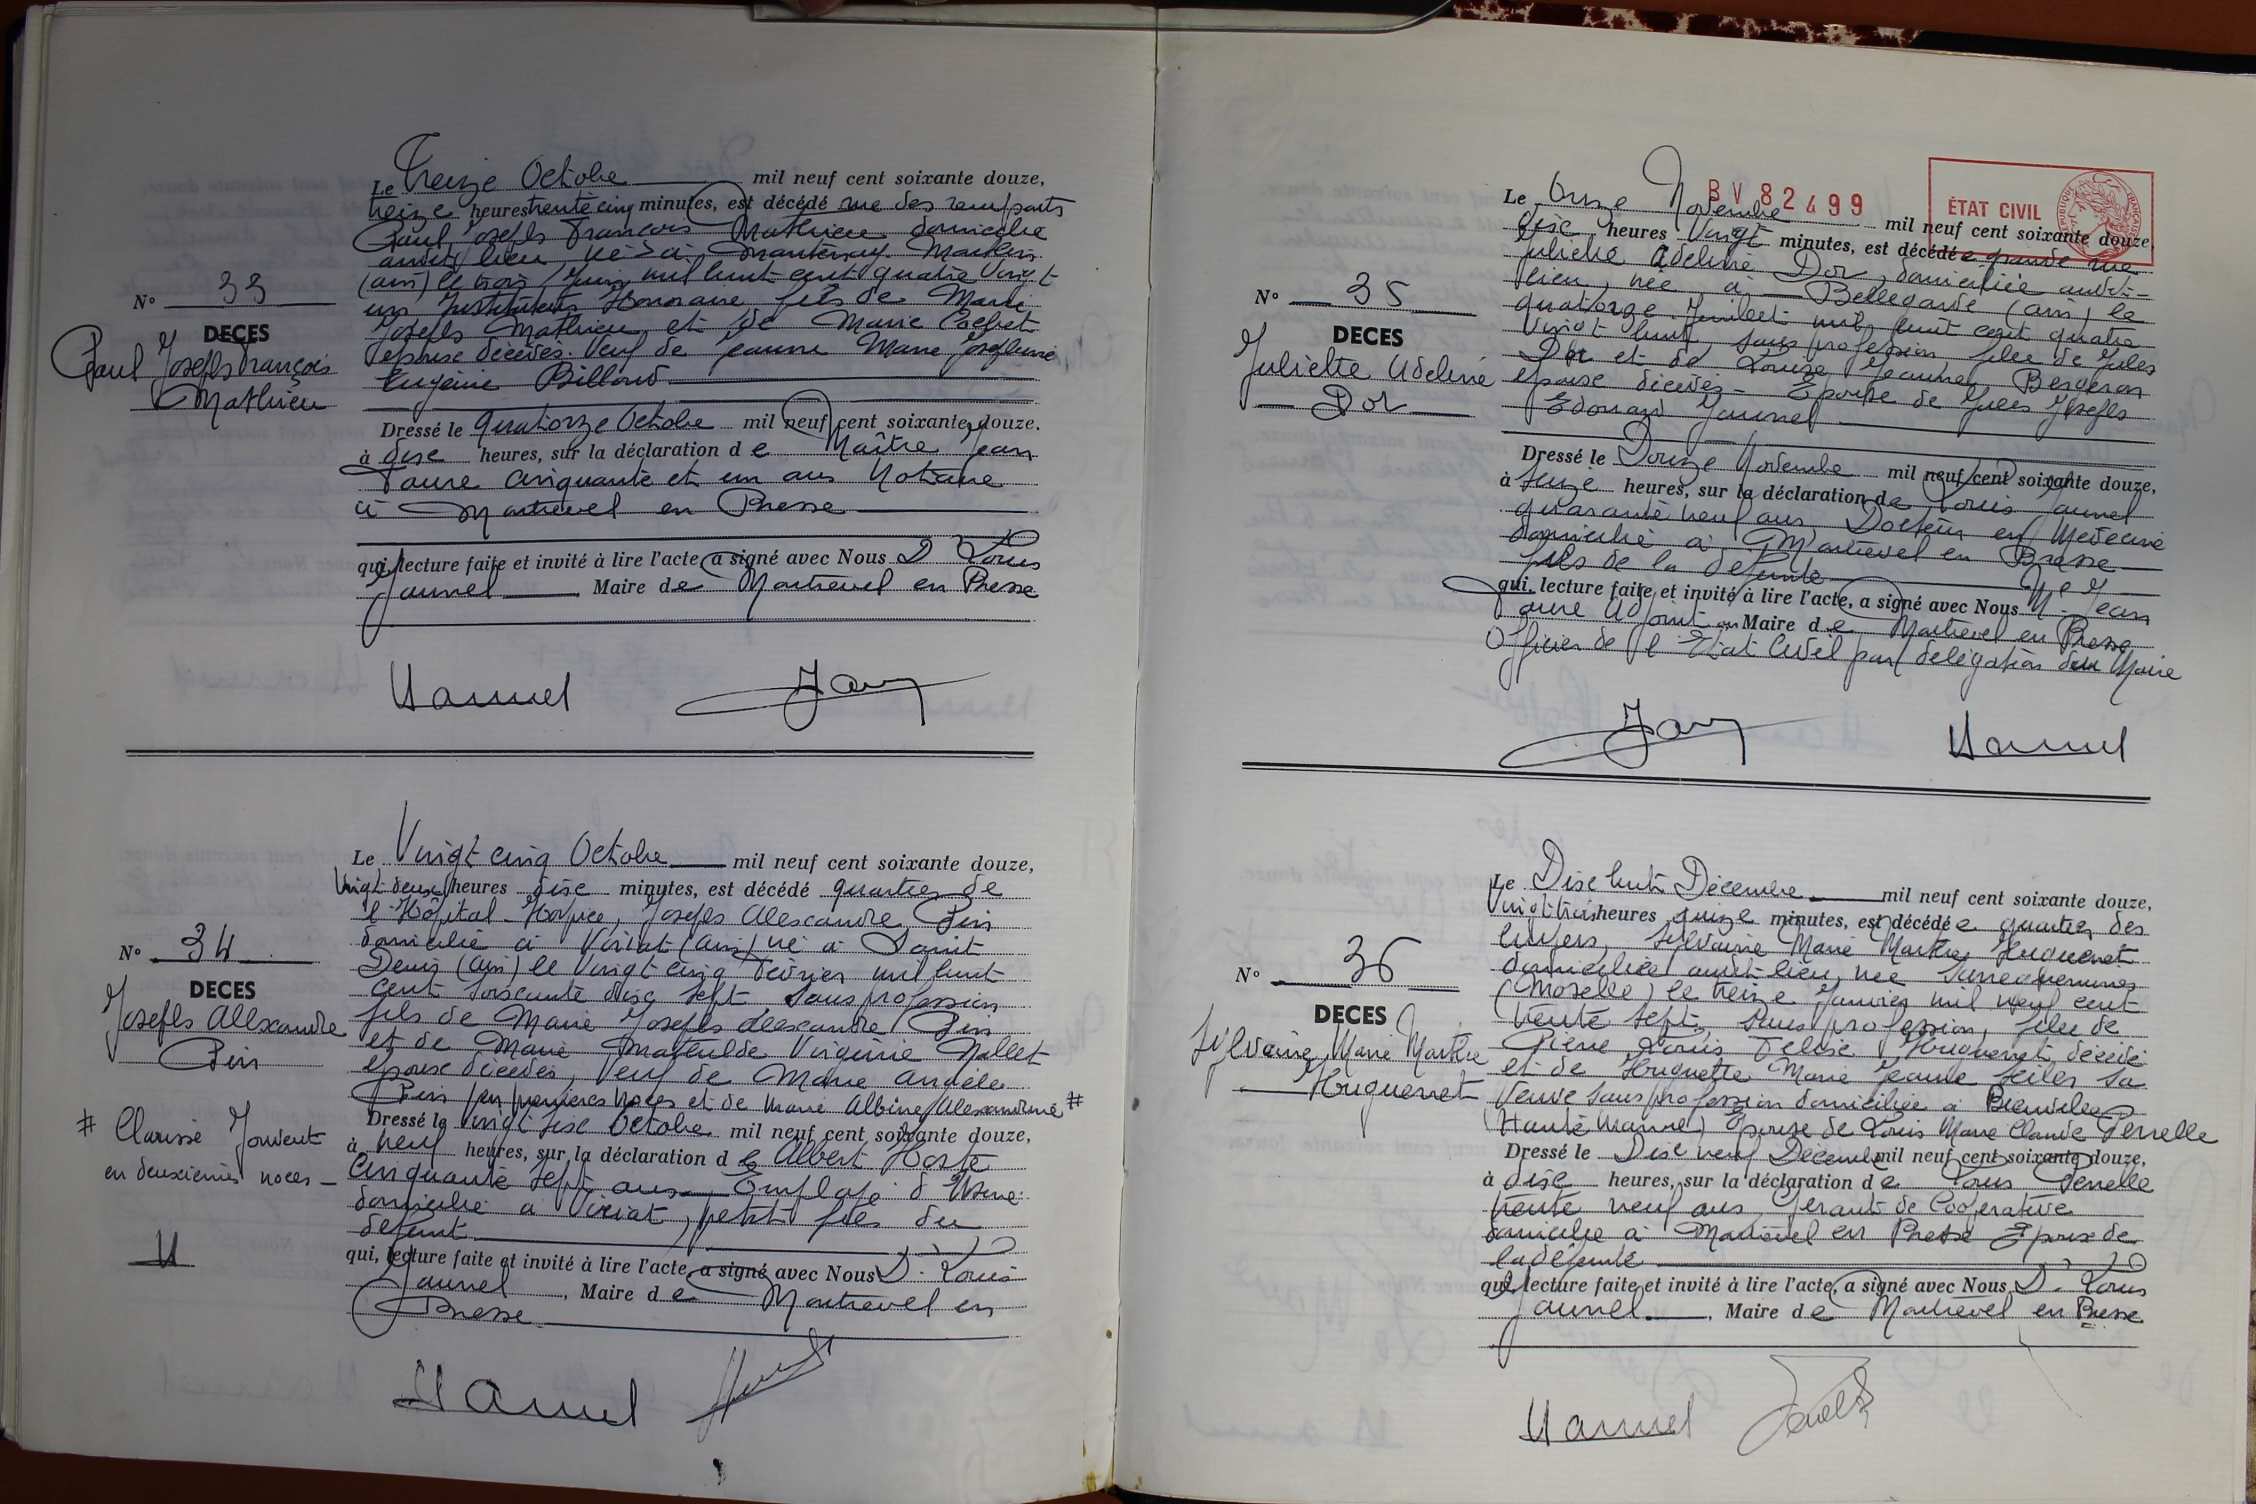 Le Treize Octobre mil neuf cent soixante douze,
treize heures trente cinq minutes, est décédé rue des remparts
Paul Joseph François Mathieu domicilié
audit lieu, né à Mantenay Montlin
(ain) le trois Juin mil huit cent quatre vingt
un Instituteur Honoraire fils de Marie
Joseph Mathieu et de Marie
épouse décédés. Veuf de Jeanne Marie Joséphine
Eugénie Billoud
N° 33
DECES
Paul Joseph François
Mathieu
Dressé le quatorze Octobre mil neuf cent soixante douze.
à dix heures, sur la déclaration de Maître Jean
Faure Cinquante et un ans Notaire
à Montrevel en Bresse
qui, lecture faite et invité à lire l'acte, a signé avec Nous D Louis
Jaunel Maire de Montrevel en Bresse
Le Vingt cinq Octobre mil neuf cent soixante douze,
Vingt deux heures dix minutes, est décédé quartier de
l'Hôpital-Hospice, Joseph Alexandre Pin
domicilié à Viriat (ain) né à Saint
Denis (ain) le Vingt cinq Février mil huit
cent soixante dix sept sans profession
fils de Marie Joseph Alexandre Pin
et de Marie Mathilde Virginie Nallet
épouse décédés, Veuf de Marie Andèle
Pin en premières noces et de Marie Albine Alexandrine #
N° 34
DECES
Joseph Alexandre
Pin
# Clarisse Jouvent
en deuxièmes noces -
Dressé le Vingt six Octobre mil neuf cent soixante douze,
à neuf heures, sur la déclaration de Albert Hoste
Cinquante sept ans Employé d'Usine
domicilié à Viriat, petit fils du
défunt
qui, lecture faite et invité à lire l'acte, a signé avec Nous D. Louis
Jaunel, Maire de Montrevel en
Bresse
BV 82499
ÉTAT CIVIL
Le Onze Novembre mil neuf cent soixante douze,
dix heures Vingt minutes, est décédée grande rue
Juliette Adeline Dor, domiciliée audit-
lieu, née à Bellegarde (ain) le
quatorze Juillet mil huit cent quatre
Vingt huit, sans profession fille de Jules
Dor et de Louise Jeanne Bergeron
épouse décédés - Épouse de Jules Joseph
Edouard Jaunel
N° 35
DECES
Juliette Adeline
Dor
Dressé le Douze Novembre mil neuf cent soixante douze,
à seize heures, sur la déclaration de Louis Jaunel
quarante neuf ans Docteur en Médecine
domicilié à Montrevel en Bresse
fils de la défunte
qui, lecture faite et invité à lire l'acte, a signé avec Nous M. Jean
Faure Adjoint au Maire de Montrevel en Bresse
Officier de l'Etat Civil par délégation du Maire
Le Dix huit Décembre mil neuf cent soixante douze,
Vingt trois heures quinze minutes, est décédée quartier des
Luyers, Sylvaine Marie Marthe Huguenet
domiciliée audit lieu, née Sarreguemines
(Moselle) le treize Janvier mil neuf cent
trente sept, sans profession, fille de
Pierre Louis Huguenet décédé
et de Huguette Marie Jeanne sa
Veuve sans profession domiciliée à
(Haute Marne) Epouse de Louis Marie Claude Perrelle
N° 36
DECES
Sylvaine Marie Marthe
Huguenet
Dressé le Dix neuf Décembre mil neuf cent soixante douze,
à dix heures, sur la déclaration de Louis Perrelle
trente neuf ans Gérant de Coopérative
domicilié à Montrevel en Bresse Epoux de
la défunte
qui, lecture faite et invité à lire l'acte, a signé avec Nous D. Louis
Jaunel, Maire de Montrevel en Bresse